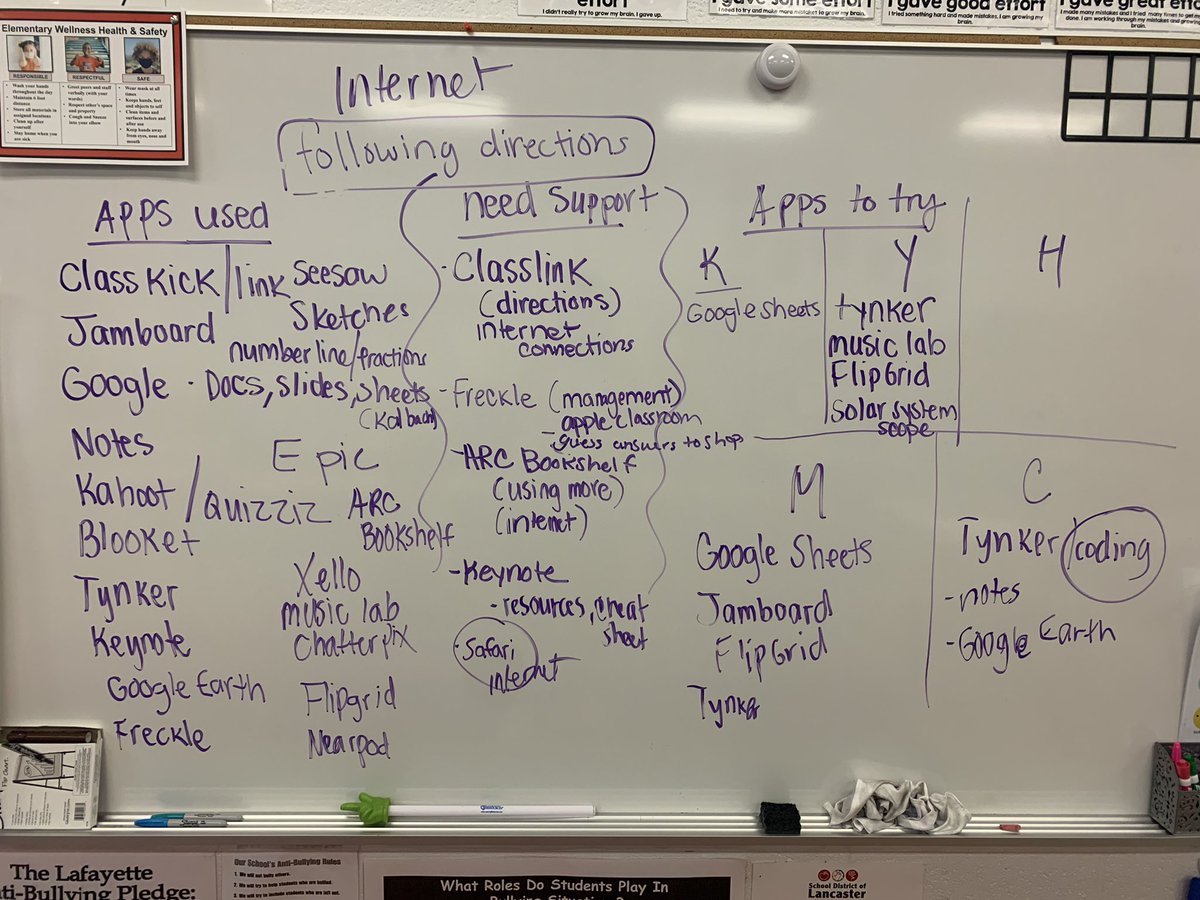 effort
I didn't really try to grow my brain. I gave up.
I gave some effort
I need to try and make more mistakes to grow my brain.
I gave good effort
I tried something hard and made mistakes, I am growing my brain.
I gave great effort
Elementary Wellness Health & Safety
RESPONSIBLE
Wash your hands throughout the day
Maintain 6 foot distance
Store all materials in assigned locations
Clean up after yourself
Stay home when you are sick
RESPECTFUL
Greet peers and staff verbally (with your words)
Respect other's space and property
Cough and Sneeze into your elbow
SAFE
Wear mask at all times
Keeps hands, feet and objects to self
Clean items and surfaces before and after use
Keep hands away from eyes, nose and mouth
Internet
following directions
Apps used
Class Kick/link Seesaw
Sketches
Jamboard
number line/fractions
Google · Docs, Slides, Sheets
(Kalbach)
Notes
Epic
Kahoot / Quizziz ARC
Bookshelf
Blooket
Xello
Tynker
music lab
Keynote
Chatterpix
Google Earth
Flipgrid
Freckle
Nearpod
need support
- Classlink
(directions)
internet
connections
- Freckle (management)
apple classroom
- guess answers to shop
- ARC Bookshelf
(using more)
(internet)
- Keynote
- resources, cheat
sheet
· Safari
internet
Apps to try
K
Google sheets
Y
tynker
music lab
FlipGrid
Solar system
scope
H
M
Google Sheets
Jamboard
FlipGrid
Tynker
C
Tynker/coding
- notes
- Google Earth
The Lafayette
ti-Bullying Pledge:
Our School's Anti-Bullying Rules
1. We will not bully others.
2. We will try to help students who are bullied.
3. We will try to include students who are left out.
What Roles Do Students Play In
School District of
Lancaster